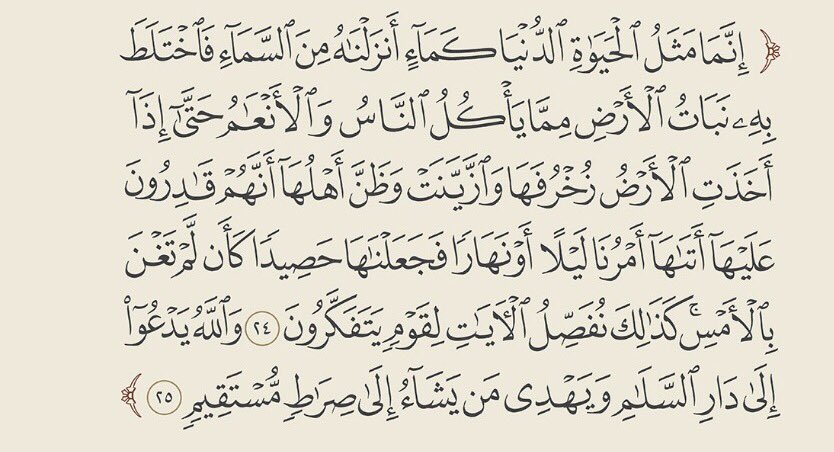 ﴿ إِنَّمَا مَثَلُ ٱلْحَيَوٰةِ ٱلدُّنْيَا كَمَآءٍ أَنزَلْنَٰهُ مِنَ ٱلسَّمَآءِ فَٱخْتَلَطَ
بِهِۦ نَبَاتُ ٱلْأَرْضِ مِمَّا يَأْكُلُ ٱلنَّاسُ وَٱلْأَنْعَٰمُ حَتَّىٰٓ إِذَآ
أَخَذَتِ ٱلْأَرْضُ زُخْرُفَهَا وَٱزَّيَّنَتْ وَظَنَّ أَهْلُهَآ أَنَّهُمْ قَٰدِرُونَ
عَلَيْهَآ أَتَىٰهَآ أَمْرُنَا لَيْلًا أَوْ نَهَارًا فَجَعَلْنَٰهَا حَصِيدًا كَأَن لَّمْ تَغْنَ
بِٱلْأَمْسِ ۚ كَذَٰلِكَ نُفَصِّلُ ٱلْءَايَٰتِ لِقَوْمٍ يَتَفَكَّرُونَ ٢٤ وَٱللَّهُ يَدْعُوٓا۟
إِلَىٰ دَارِ ٱلسَّلَٰمِ وَيَهْدِى مَن يَشَآءُ إِلَىٰ صِرَٰطٍ مُّسْتَقِيمٍ ٢٥ ﴾